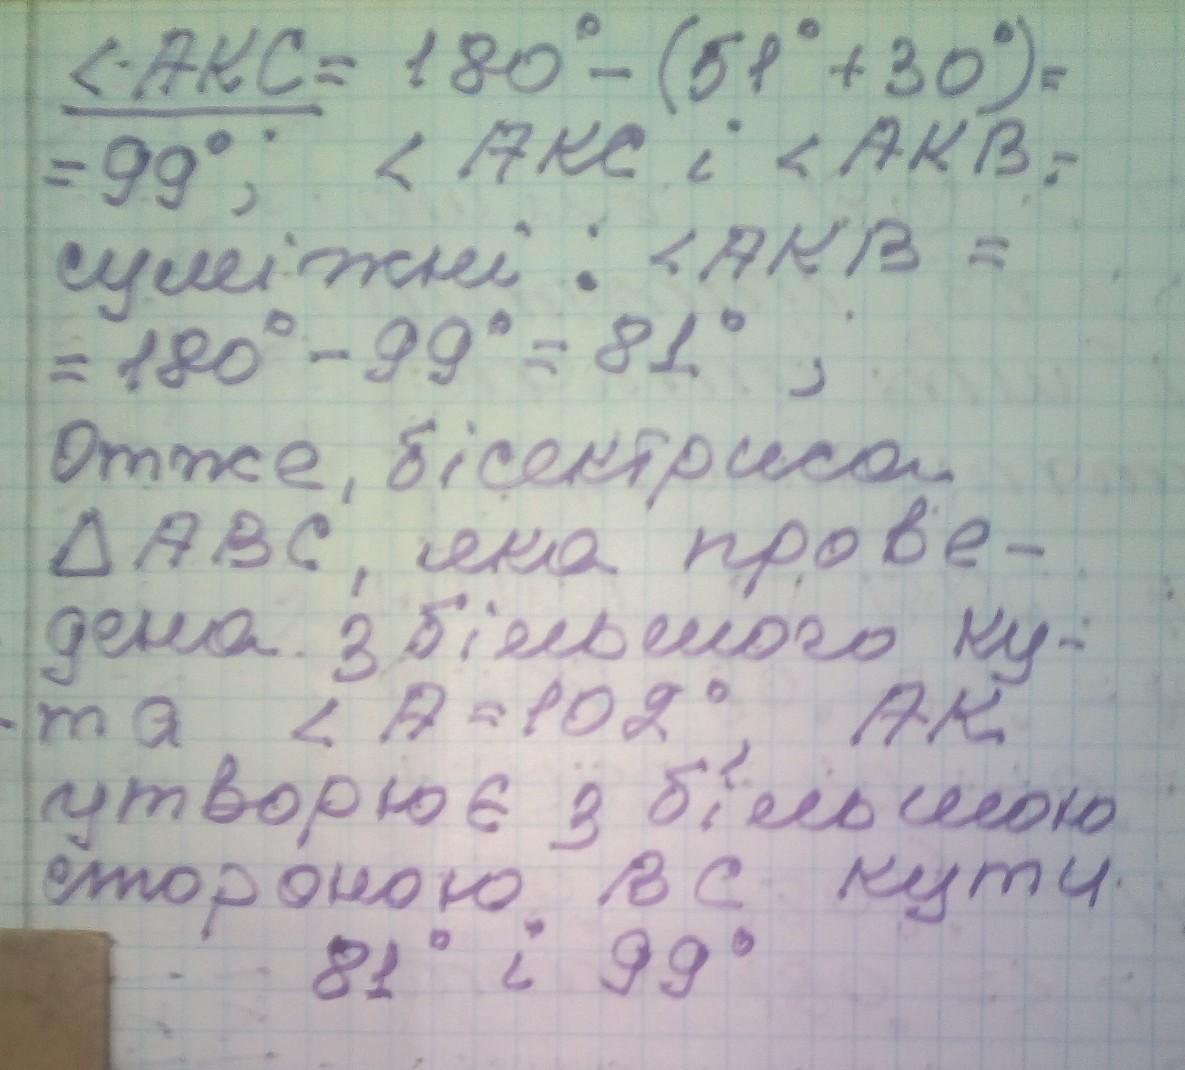 <·AKC = 180° - (51° + 30°) =
= 99°; < AKC і < AKB -
суміжні : < AKB =
= 180° - 99° = 81° ;
Отже, бісектриса
△ ABC, яка прове-
дена з більшого ку-
та < A = 102°, AK
утворює з більшою
стороною BC кути
81° і 99°